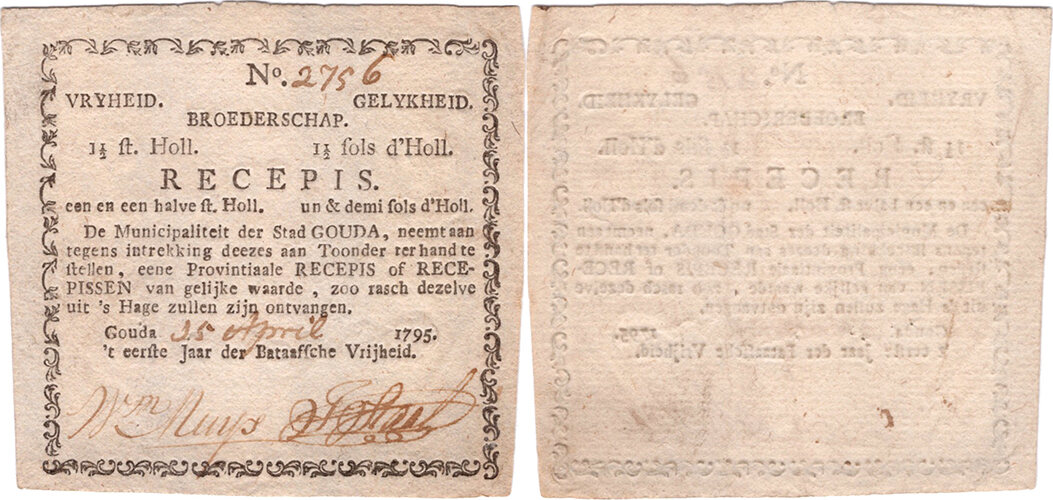 No. 2756
VRYHEID. GELYKHEID.
BROEDERSCHAP.
1½ ſt. Holl. 1½ ſols d'Holl.
RECEPIS.
een en een halve ſt. Holl. un & demi ſols d'Holl.
De Municipaliteit der Stad GOUDA, neemt aan
tegens intrekking deezes aan Toonder ter hand te
ſtellen, eene Provintiaale RECEPIS of RECE-
PISSEN van gelijke waarde, zoo rasch dezelve
uit 's Hage zullen zijn ontvangen.
Gouda 25 April 1795.
't eerste Jaar der Bataafſche Vrijheid.
Wm Muys